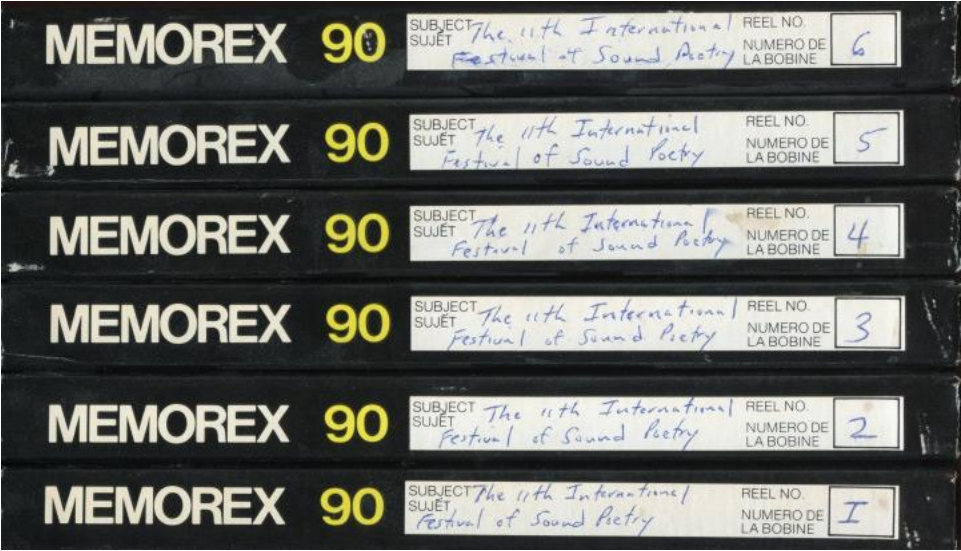 MEMOREX 90 SUBJECT SUJET The 11th International Festival of Sound Poetry REEL NO. NUMERO DE LA BOBINE 6
MEMOREX 90 SUBJECT SUJET The 11th International Festival of Sound Poetry REEL NO. NUMERO DE LA BOBINE 5
MEMOREX 90 SUBJECT SUJET The 11th International Festival of Sound Poetry REEL NO. NUMERO DE LA BOBINE 4
MEMOREX 90 SUBJECT SUJET The 11th International Festival of Sound Poetry REEL NO. NUMERO DE LA BOBINE 3
MEMOREX 90 SUBJECT SUJET The 11th International Festival of Sound Poetry REEL NO. NUMERO DE LA BOBINE 2
MEMOREX 90 SUBJECT SUJET The 11th International Festival of Sound Poetry REEL NO. NUMERO DE LA BOBINE I